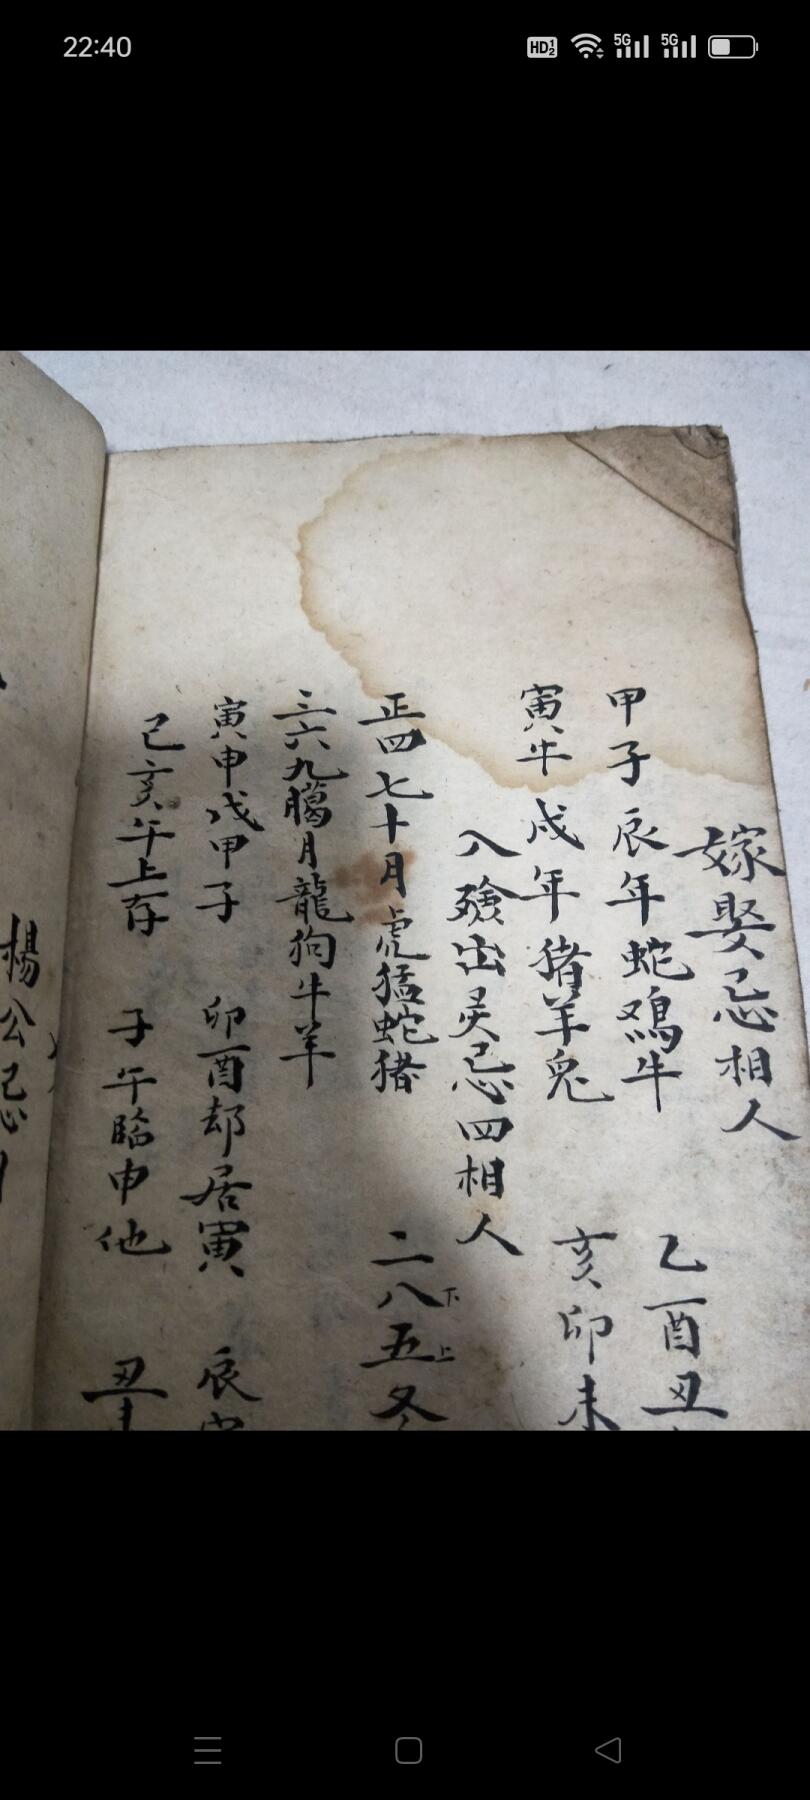 22:40
HD 1 2 5G 5G
嫁娶忌相人
甲子辰年蛇鷄牛 乙酉丑
寅午戍年猪羊兔 亥卯未
入殮出灵忌四相人
正四七十月虎猛蛇猪 二八五冬
下
上
三六九臈月龍狗牛羊
寅申戊甲子 卯酉却居寅 辰
己亥午上存 子午臨申他 丑
楊公忌